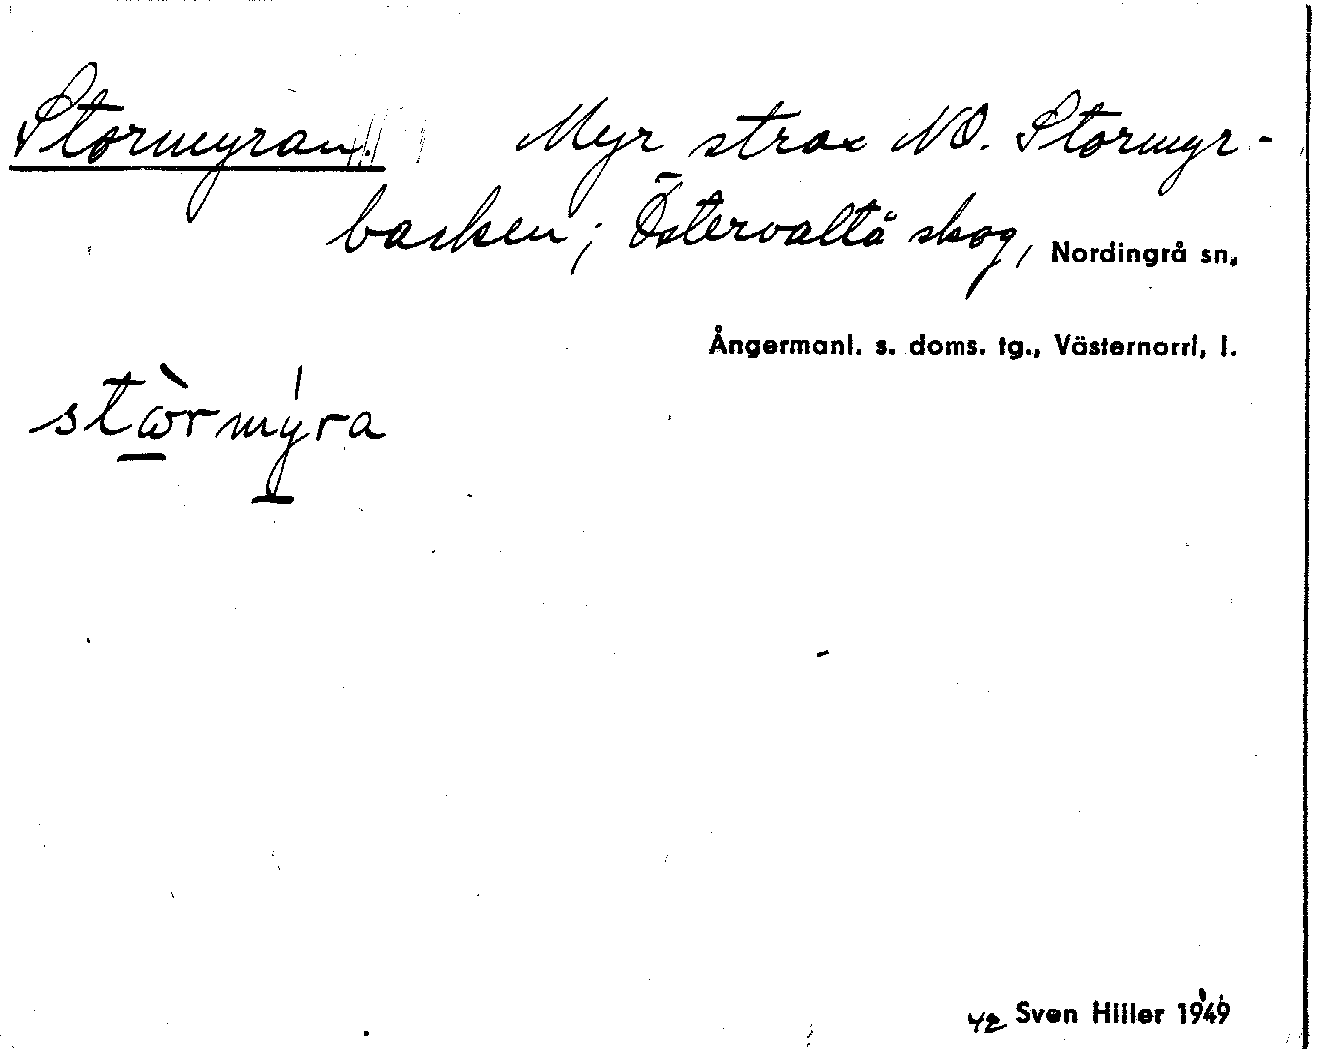 Stormyran. Myr strax NO. Stormyr-
backen; Östervaltå skog, Nordingrå sn,
Ångermanl. s. doms. tg., Västernorrl, l.
stꞷ̀rmýra
42 Sven Hiller 1949